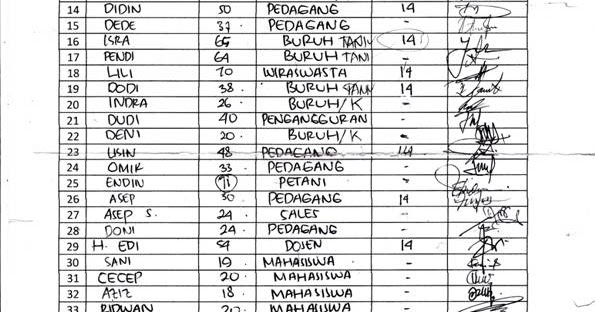 14 DIDIN 50 PEDAGANG 14
15 DEDE 37 PEDAGANG -
16 ISRA 65 BURUH TANI 14
17 PENDI 64 BURUH TANI -
18 LILI 70 WIRASWASTA 14
19 DODI 38 BURUH TANI 14
20 INDRA 26 BURUH/K -
21 DUDI 40 PENGANGGURAN -
22 DENI 20 BURUH/K -
23 USIN 48 PEDAGANG 14
24 OMIK 33 PEDAGANG -
25 ENDIN 71 PETANI -
26 ASEP 30 PEDAGANG 14
27 ASEP S. 24 SALES -
28 DONI 24 PEDAGANG -
29 H. EDI 59 DOSEN 14
30 SANI 19 MAHASISWA -
31 CECEP 20 MAHASISWA -
32 AZIZ 18 MAHASISWA -
33 RIDWAN 20 MAHASISWA -